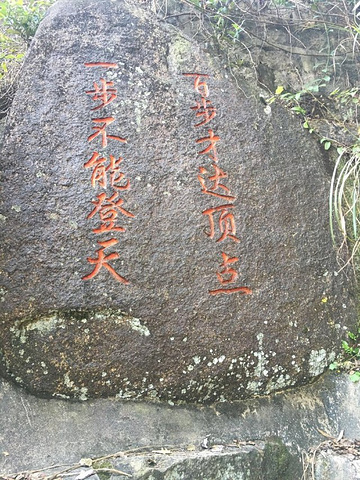 百步才达顶点
一步不能登天